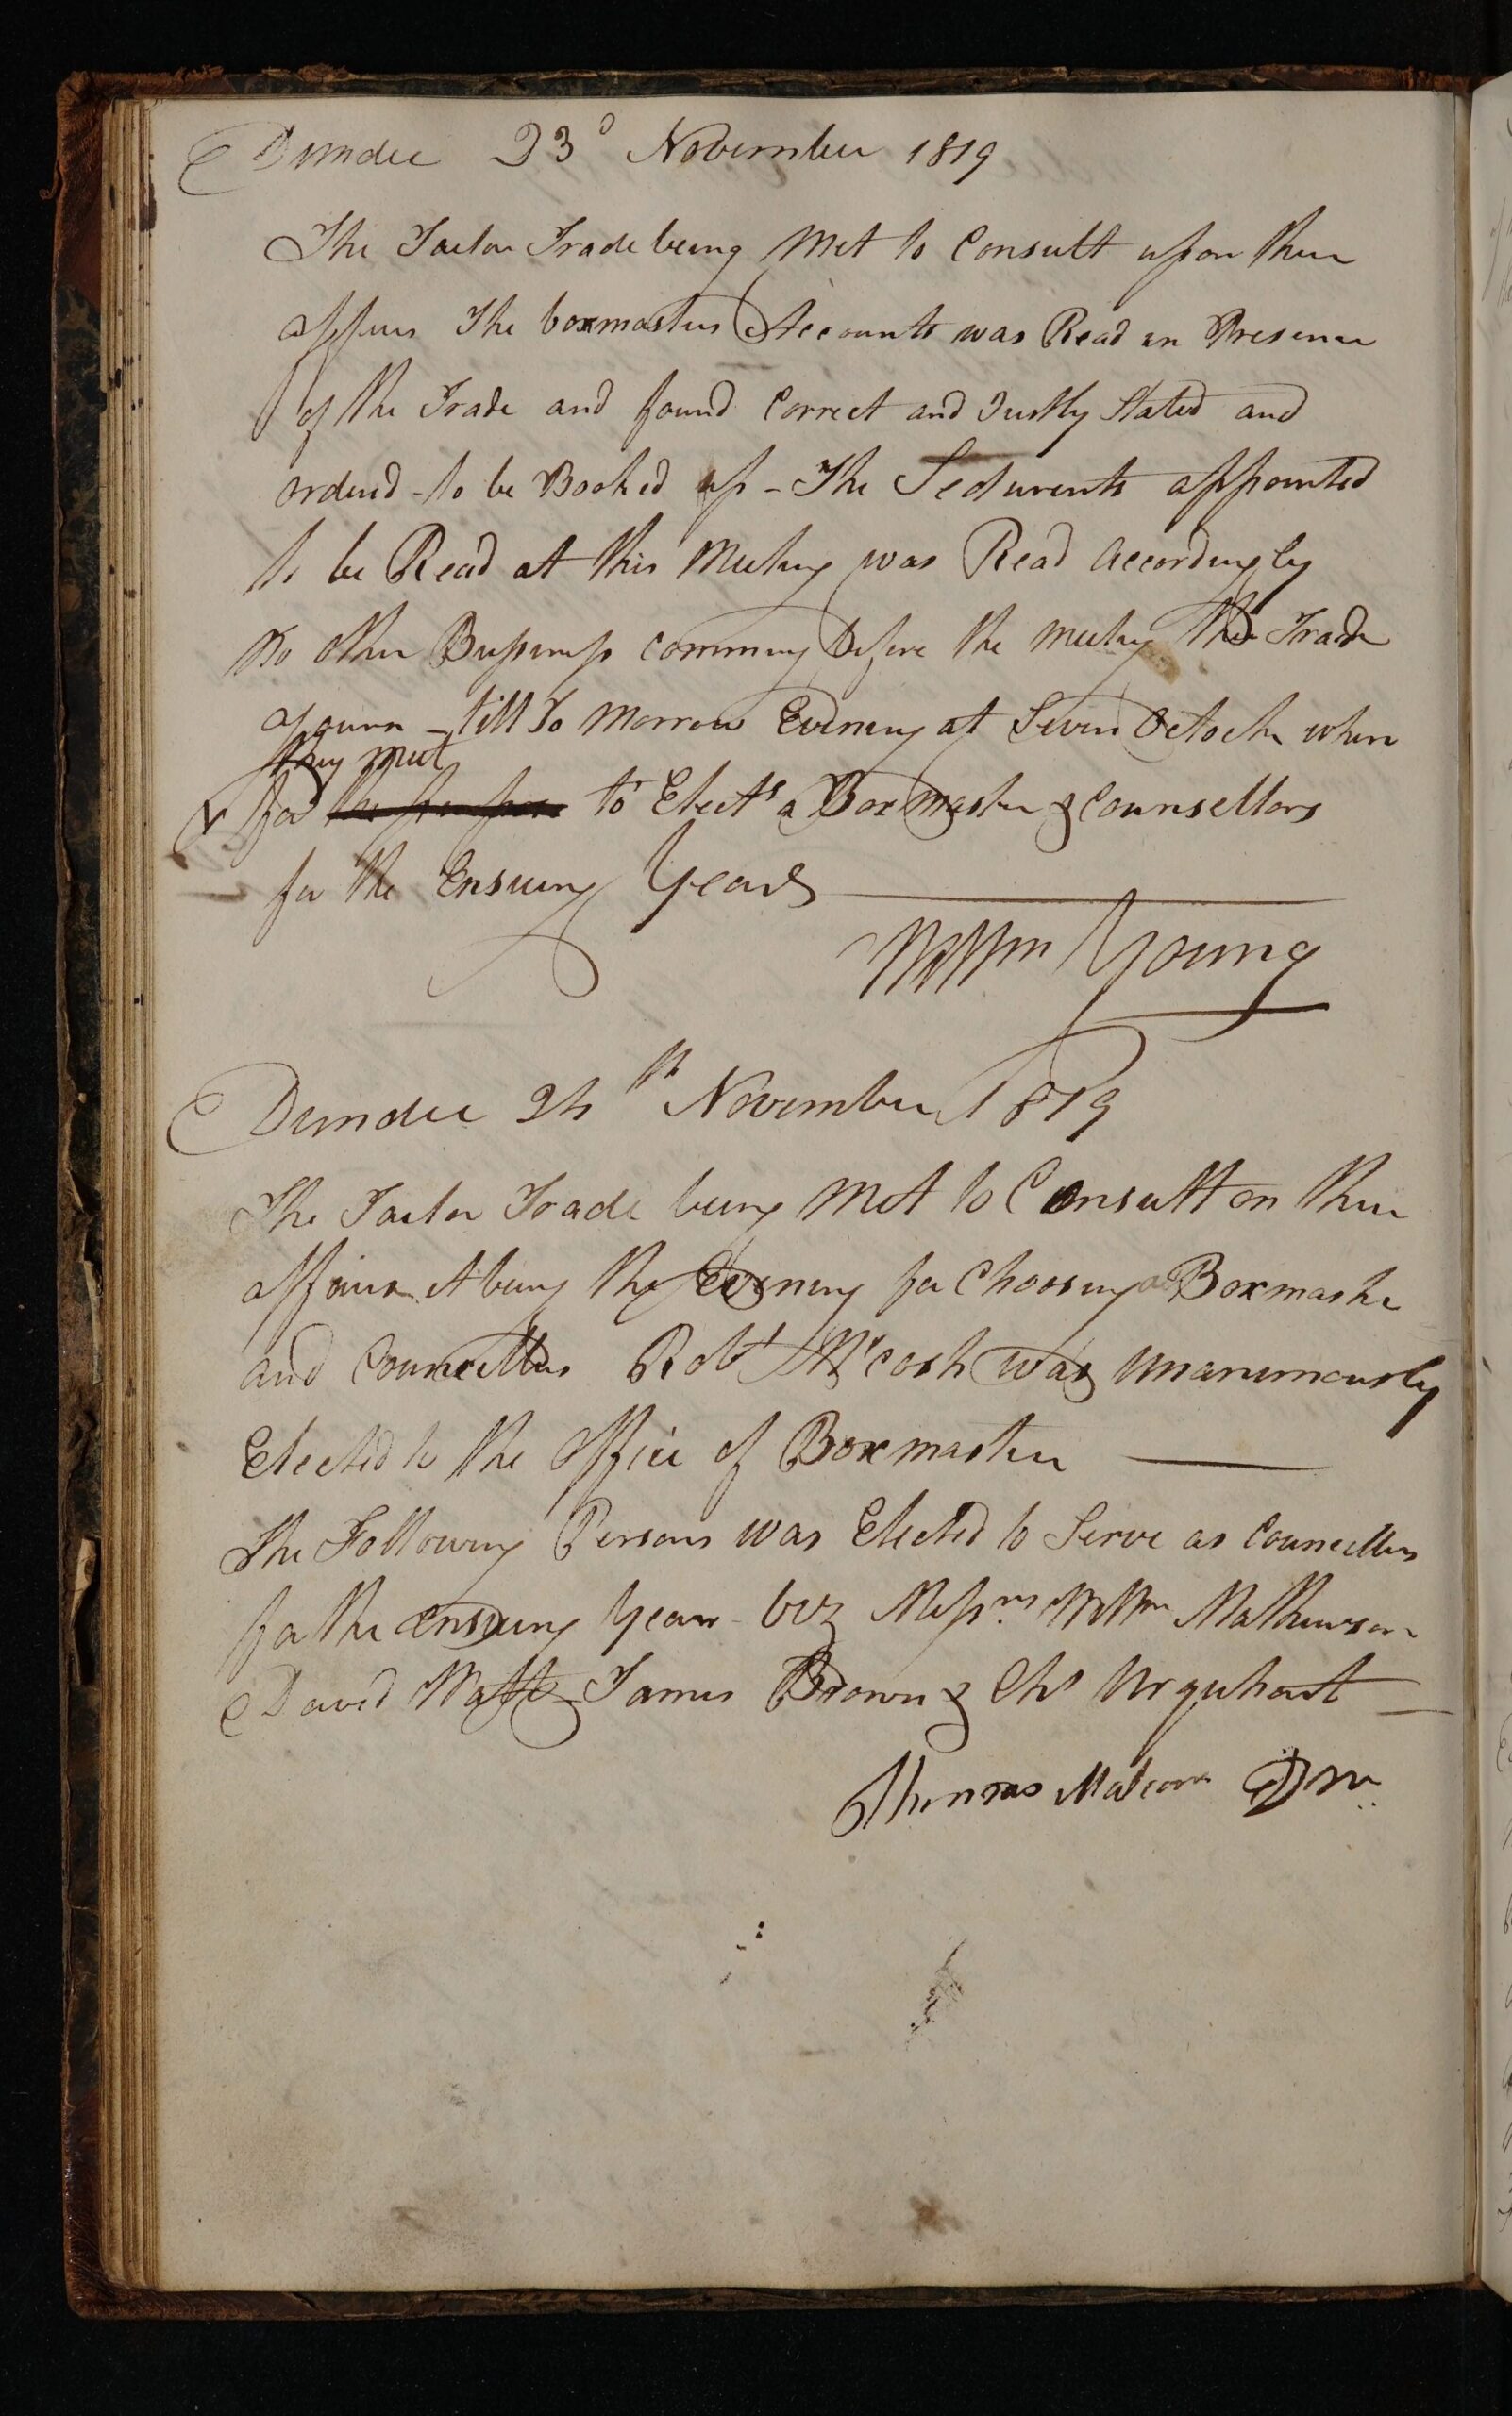 Dundee 23d November 1819
The Tailor Trade being Met to Consult upon their
affairs The boxmasters Accounts was Read in Presence
of the Trade and found Correct and Justly Stated and
ordered - to be Booked up - The Sederunts appointed
to be Read at this Meeting was Read accordingly
No other Business comming before the meeting the Trade
ajourn - till To Morrow Evening at Seven Oclock when
they meet
for to Elect a Boxmaster & Counsellors
for the Ensuing Year
Willm Young
Dundee 24th November 1819
The Tailor Trade being Met to Consult on their
affairs it being the Evening for Choosing a Boxmaster
and Councellors Robt McCosh was Unanimously
Elected to the office of Boxmaster
The Following Persons was Elected to Serve as Councellors
for the ensuing Year viz Messrs Willm Mathewson
David Watt James Brown & Chs Urquhart
Thomas Malcom Dn